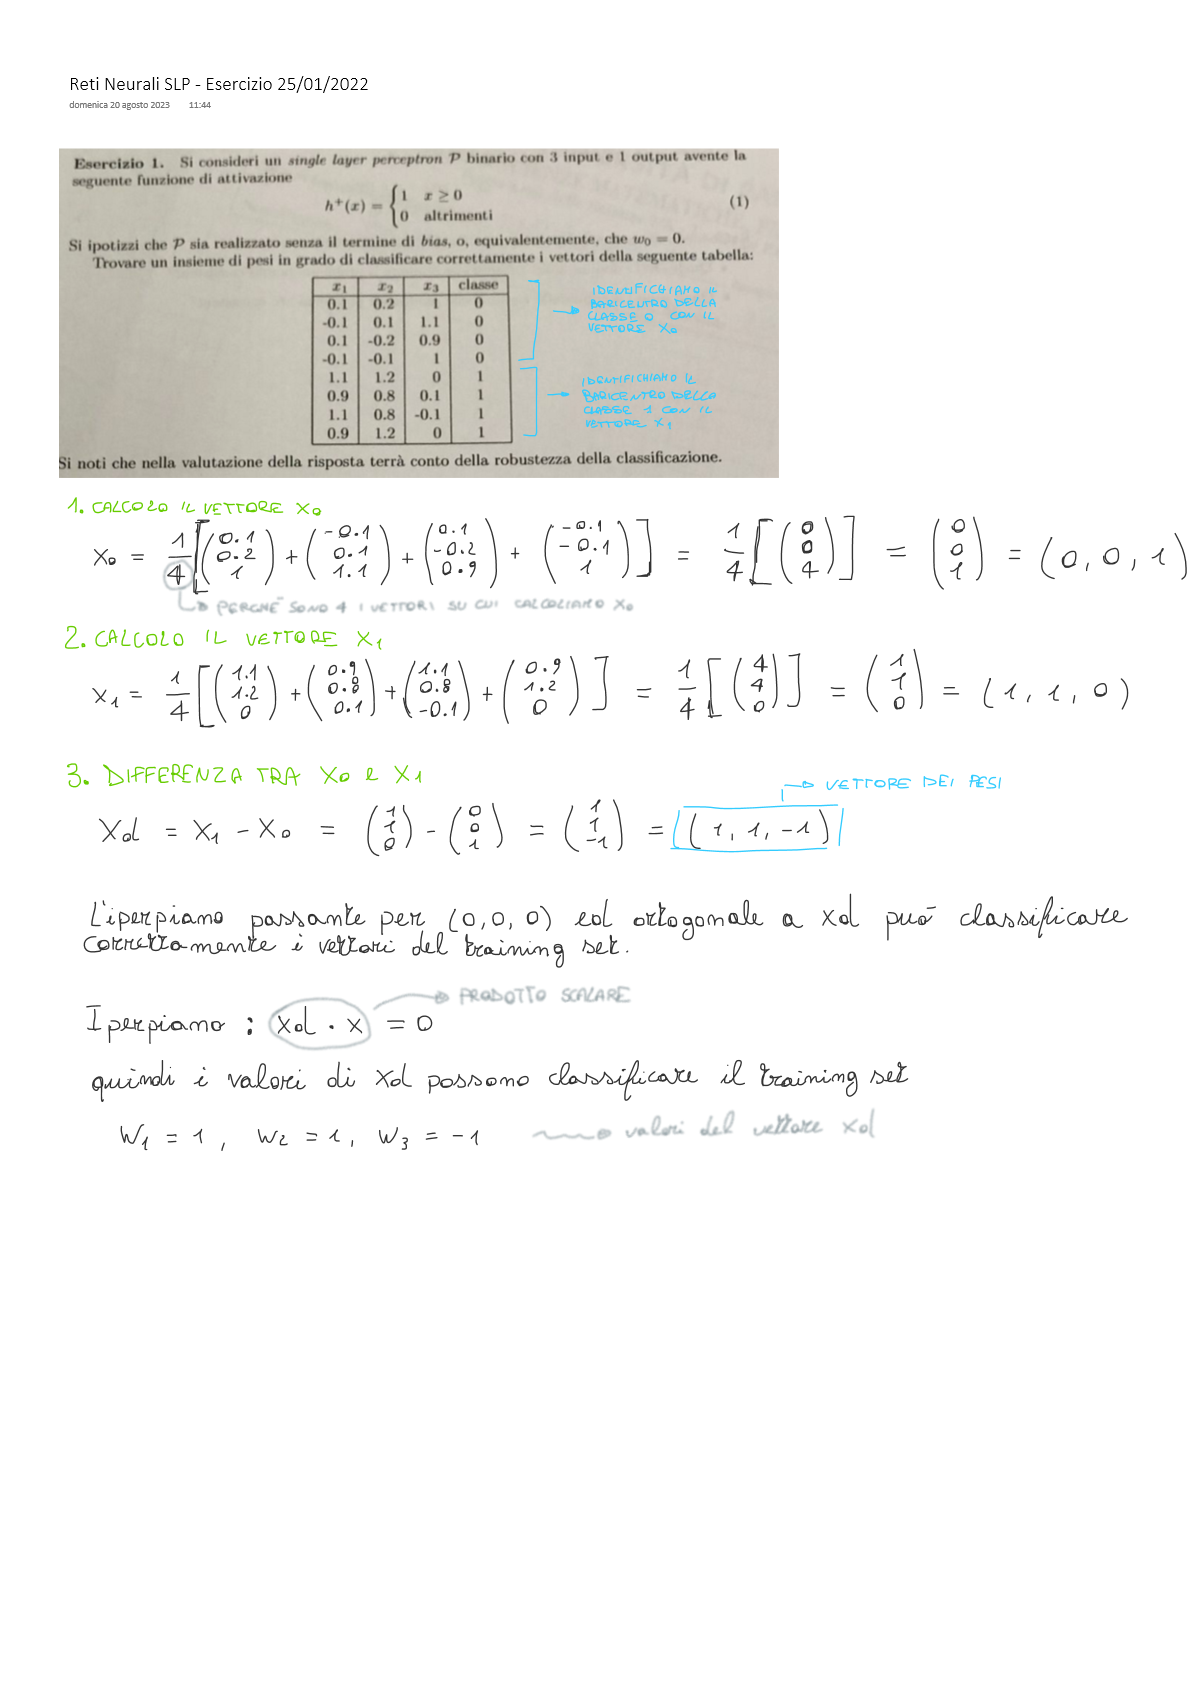 Reti Neurali SLP - Esercizio 25/01/2022
domenica 20 agosto 2023 11:44
Esercizio 1. Si consideri un single layer perceptron P binario con 3 input e 1 output avente la
seguente funzione di attivazione
h⁺(x) = { 1 x ≥ 0
0 altrimenti
(1)
Si ipotizzi che P sia realizzato senza il termine di bias, o, equivalentemente, che w₀ = 0.
Trovare un insieme di pesi in grado di classificare correttamente i vettori della seguente tabella:
x₁ x₂ x₃ classe
0.1 0.2 1 0
-0.1 0.1 1.1 0
0.1 -0.2 0.9 0
-0.1 -0.1 1 0
1.1 1.2 0 1
0.9 0.8 0.1 1
1.1 0.8 -0.1 1
0.9 1.2 0 1
IDENTIFICHIAMO IL
BARICENTRO DELLA
CLASSE 0 CON IL
VETTORE X₀
IDENTIFICHIAMO IL
BARICENTRO DELLA
CLASSE 1 CON IL
VETTORE X₁
Si noti che nella valutazione della risposta terrà conto della robustezza della classificazione.
1. CALCOLO IL VETTORE X₀
X₀ = 1/4 [ (0.1 0.2 1) + (-0.1 0.1 1.1) + (0.1 -0.2 0.9) + (-0.1 -0.1 1) ] = 1/4 [ (0 0 4) ] = (0 0 1) = (0, 0, 1)
PERCHÉ SONO 4 I VETTORI SU CUI CALCOLIAMO X₀
2. CALCOLO IL VETTORE X₁
X₁ = 1/4 [ (1.1 1.2 0) + (0.9 0.8 0.1) + (1.1 0.8 -0.1) + (0.9 1.2 0) ] = 1/4 [ (4 4 0) ] = (1 1 0) = (1, 1, 0)
3. DIFFERENZA TRA X₀ e X₁
VETTORE DEI PESI
Xd = X₁ - X₀ = (1 1 0) - (0 0 1) = (1 1 -1) = (1, 1, -1)
L'iperpiano passante per (0,0,0) ed ortogonale a Xd può classificare
correttamente i vettori del training set.
PRODOTTO SCALARE
Iperpiano : Xd · x = 0
quindi i valori di Xd possono classificare il training set
W₁ = 1, W₂ = 1, W₃ = -1 valori del vettore Xd